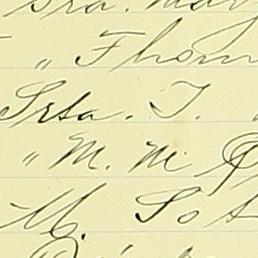 Sra. Mar
" Thom
Srta. T.
" M. M.
M. Sot